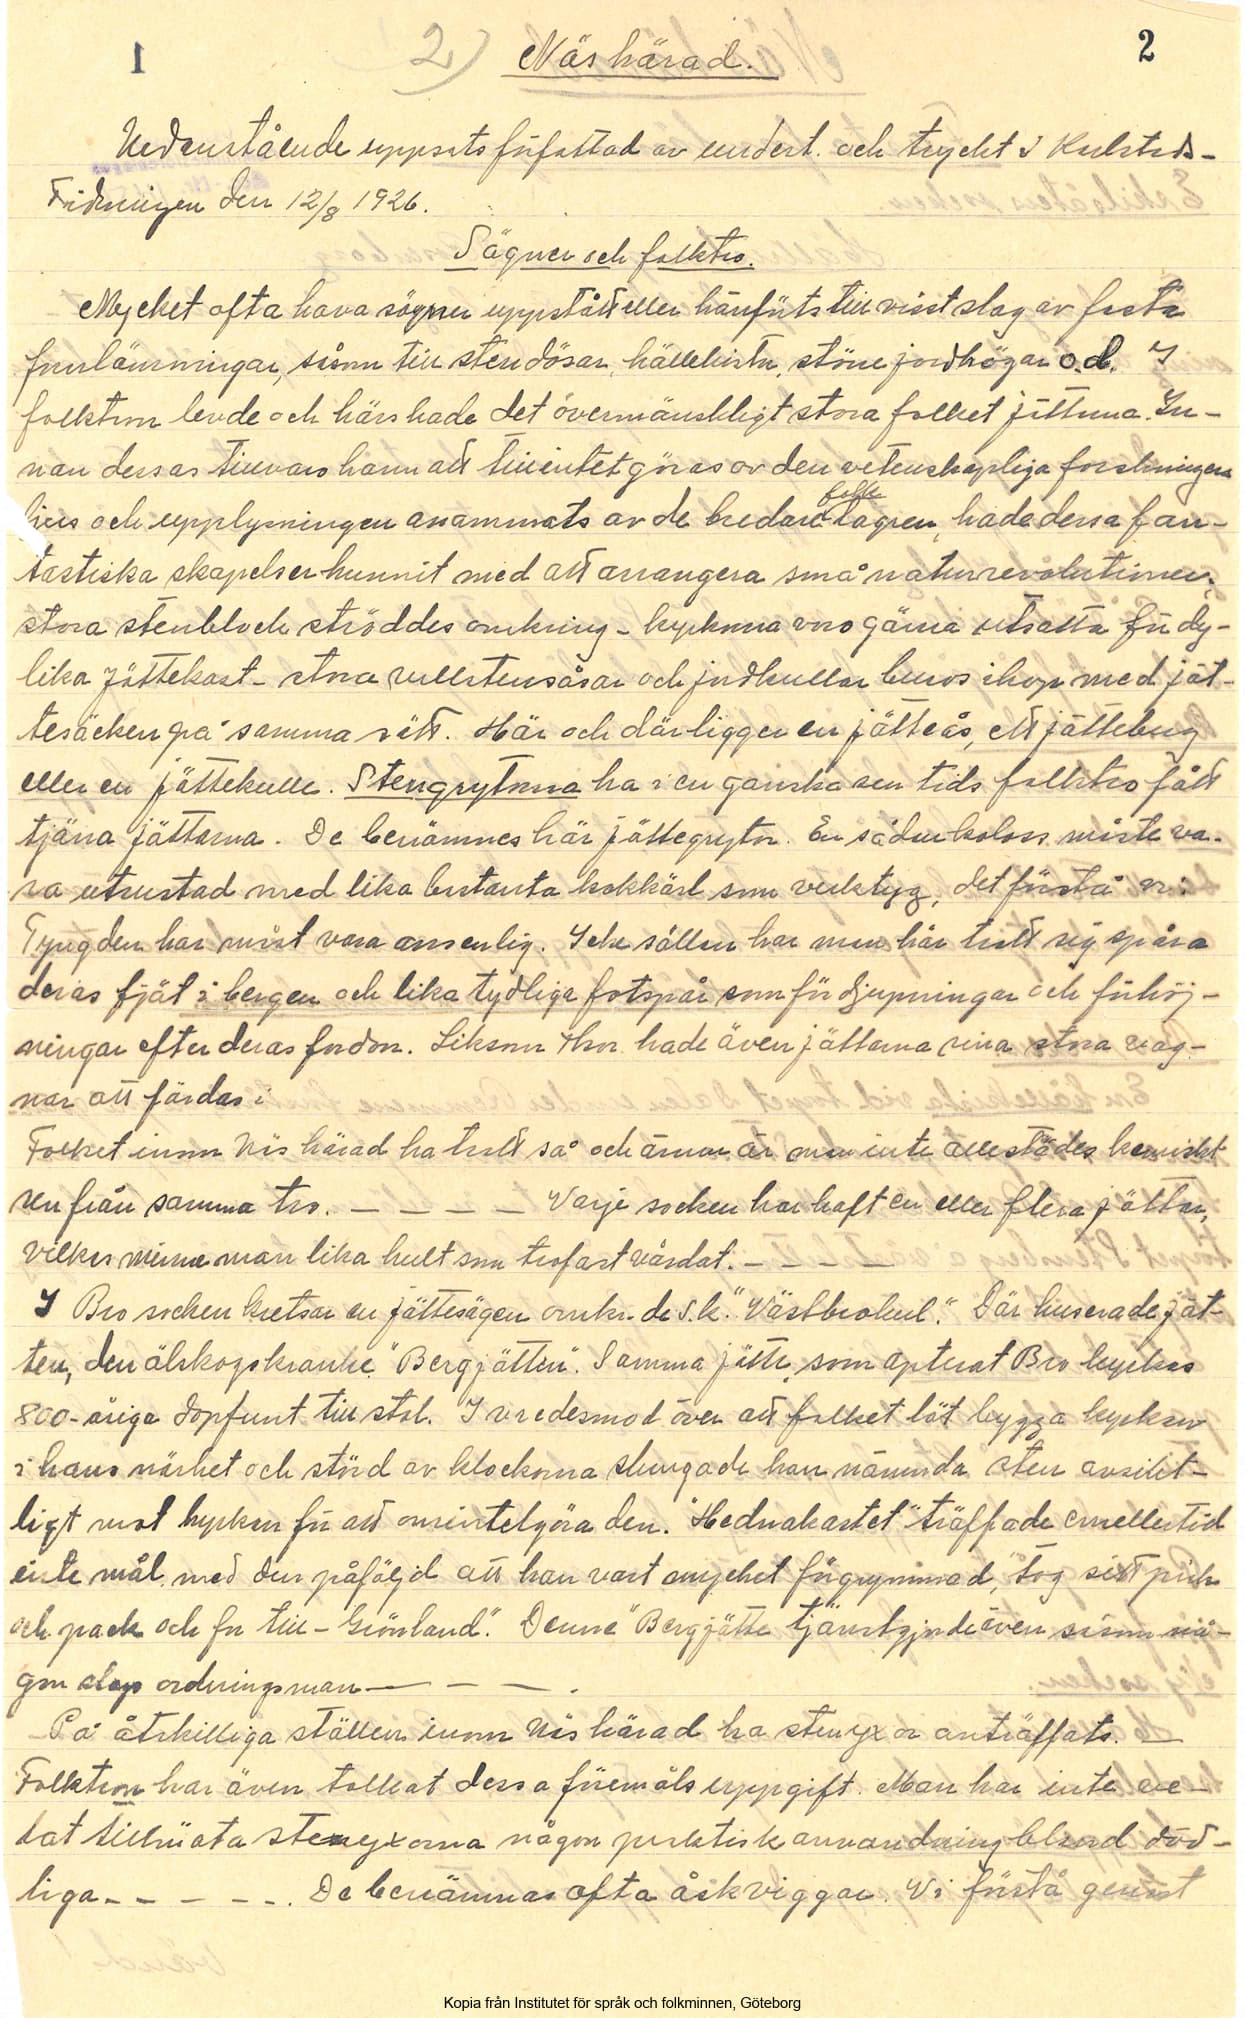 1 2) Näs härad. 2
Nedanstående uppsats författad av undert. och tryckt i Karlstads-
Tidningen den 12/8 1926.
Sägner och folktro.
Mycket ofta hava sägner uppstått eller hänförts till visst slag av fasta
fornlämningar, såsom till stendösar, hällekistor, större jordhögar o.d. I
folktron levde och härskade det övermänskligt stora folket jättarna. In-
nan dessas tillvaro hann att tillintetgöras av den vetenskapliga forskningens
ljus och upplysningen anammats av de bredare folk lagren, hade dessa fan-
tastiska skapelser hunnit med att arrangera små naturrevolutioner,
stora stenblock ströddes omkring – kyrkorna voro gärna utsatta för dy-
lika jättekast – stora rullstensåsar och jordkullar buros ihop med jät-
tesäcken på samma sätt. Här och där ligger en jätteås, ett jätteberg
eller en jättekulle. Stengrytorna ha i en ganska sen tids folktro fått
tjäna jättarna. De benämnes här jättegrytor. En sådan koloss måste va-
ra utrustad med lika bastanta kokkärl som verktyg, det förstå vi.
Tyngden har måst vara ansenlig. Icke sällan har man här trott sig spåra
deras fjät i bergen och lika tydliga fotspår som fördjupningar och förhöj-
ningar efter deras fordon. Liksom Thor hade även jättarna sina stora vag-
nar att färdas i
Folket inom Näs härad ha trott så och ännu är man inte allestädes kemiskt
ren från samma tro. – – – – – Varje socken har haft en eller flera jättar,
vilkas minne man lika hult som trofast vårdat. – – – –
I Bro socken kretsar en jättesägen omkr. de s.k. "Västbrohul". Där huserade jät-
ten, den älskogskranke "Bergjätten". Samma jätte, som apterat Bro kyrkas
800-åriga dopfunt till stol. I vredesmod över att folket lät bygga kyrkan
i hans närhet och störd av klockorna slungade han nämnda sten avsikt-
ligt mot kyrkan för att omintetgöra den. "Hednakastet" träffade emellertid
inte mål, med den påföljd att han vart mycket förgrymmad, "tog sitt pick
och pack och for till – Grönland". Denne "Bergjätte" tjänstgjorde även såsom nå-
gon slags ordningsman – – – .
På åtskilliga ställen inom Näs härad ha stenyxor anträffats. –
Folktron har även tolkat dessa föremåls uppgift. Man har inte ve-
lat tillmäta stenyxorna någon praktisk användning bland död-
liga – – – – –. De benämnas ofta åskviggar. Vi förstå genast
Kopia från Institutet för språk och folkminnen, Göteborg